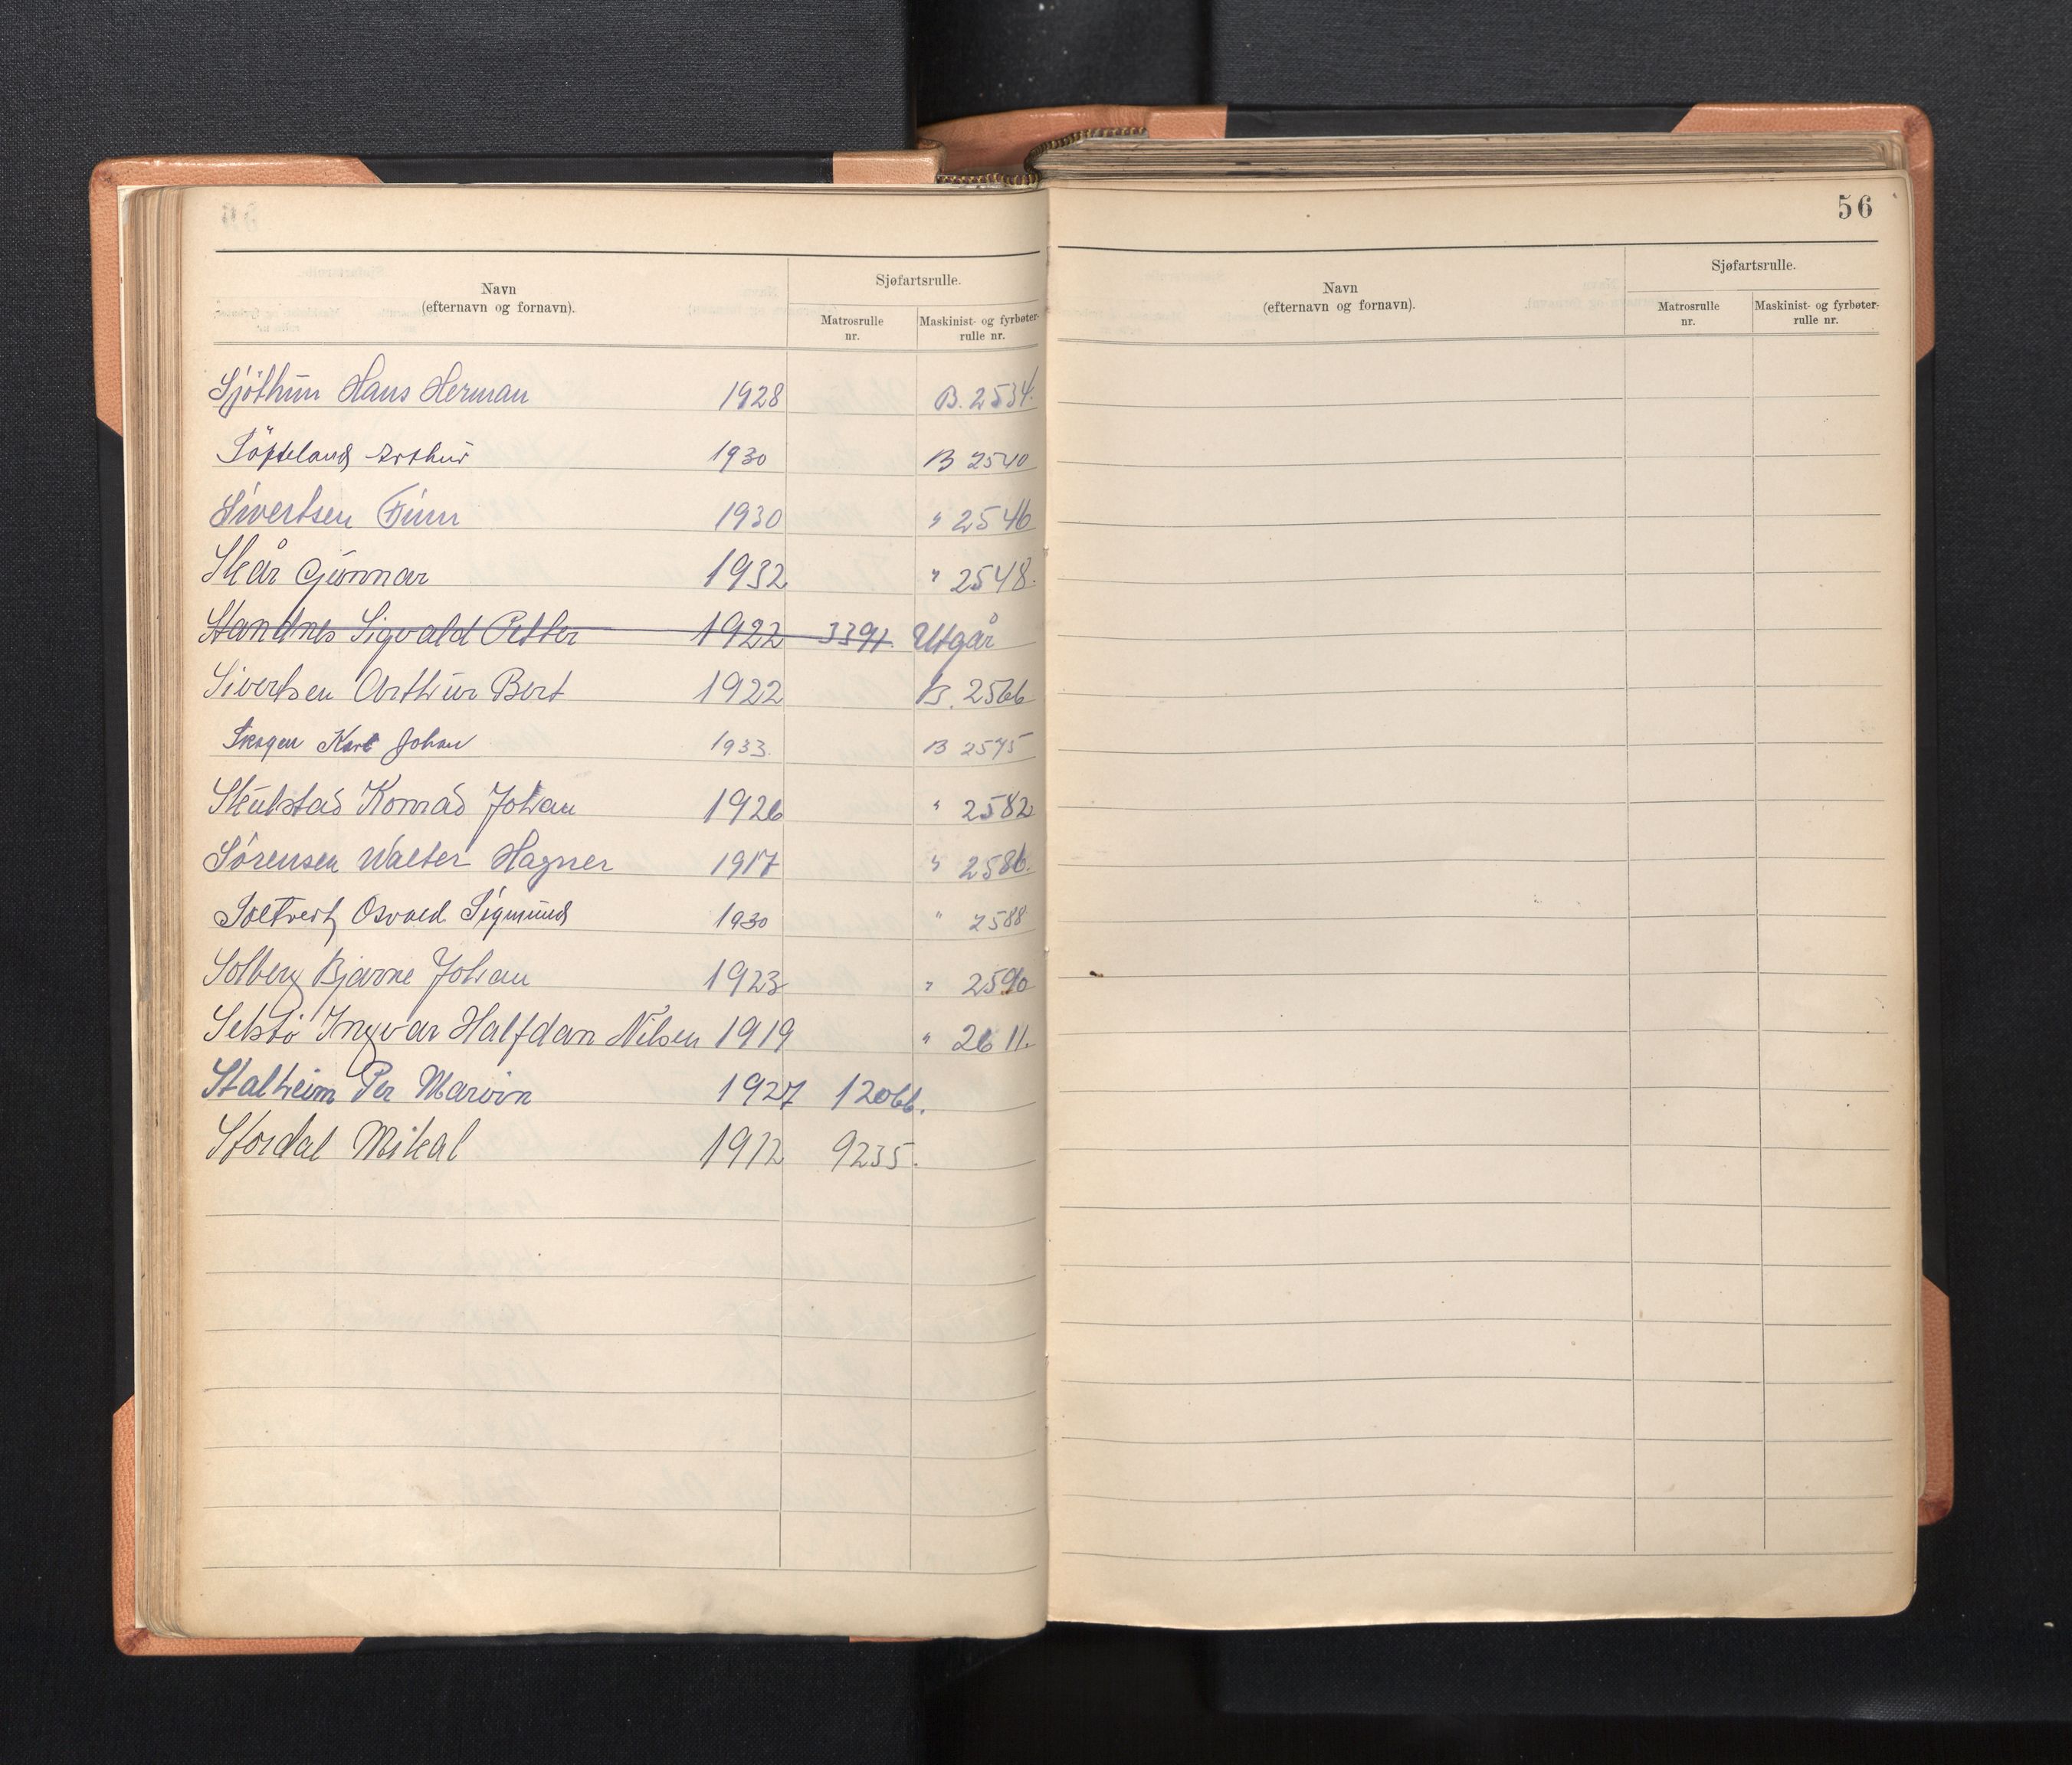 Navn
(efternavn og fornavn).
Sjøfartsrulle.
Matrosrulle
nr.
Maskinist- og fyrbøter-
rulle nr.
Sjöthun Hans Herman 1928 B. 2534.
Söfteland Arthur 1930 B 2540
Sivertsen Finn 1930 " 2546
Skår Gunnar 1932 " 2548.
Standnes Sigvald Petter 1922 3391. Utgår
Sivertsen Arthur Bert 1922 B. 2566
Skogen Karl Johan 1933. B 2575
Skulstad Konrad Johan 1926 " 2582
Sörensen Walter Hagner 1917 " 2586.
Soltvedt Osvald Sigmund 1930 " 2588
Solberg Bjarne Johan 1923 " 2590
Selstö Ingvar Halfdan Nilsen 1919 " 2611.
Stalheim Per Marvin 1927 12066.
Stordal Mikal 1912 9235.
56
Navn
(efternavn og fornavn).
Sjøfartsrulle.
Matrosrulle
nr.
Maskinist- og fyrbøter-
rulle nr.